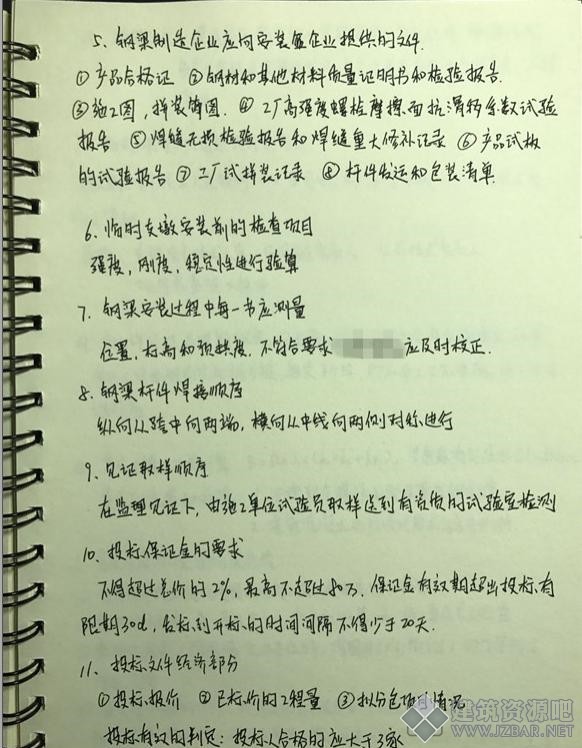 5、钢梁制造企业应向安装企业提供的文件.
①产品合格证 ②钢材和其他材料质量证明书和检验报告.
③施工图，拼装简图. ④工厂高强度螺栓摩擦面抗滑移系数试验
报告 ⑤焊缝无损检验报告和焊缝重大修补记录 ⑥产品试板
的试验报告 ⑦工厂试拼装记录 ⑧杆件发运和包装清单
6、临时支墩安装前的检查项目
强度，刚度，稳定性进行验算
7、钢梁安装过程中每一节应测量
位置，标高和预拱度. 不符合要求 应及时校正.
8、钢梁杆件焊接顺序
纵向从跨中向两端，横向从中线向两侧对称进行
9、见证取样顺序
在监理见证下，由施工单位试验员取样送到有资质的试验室检测
10、投标保证金的要求
不得超过总价的2%，最高不超过80万. 保证金有效期超出投标有
限期30d，发标到开标的时间间隔不得少于20天.
11、投标文件经济部分
①投标报价 ②已标价的工程量 ③拟分包项目情况
投标有效的判定：投标人合格的应大于3家
建筑资源吧
WWW.JZBAR.NET